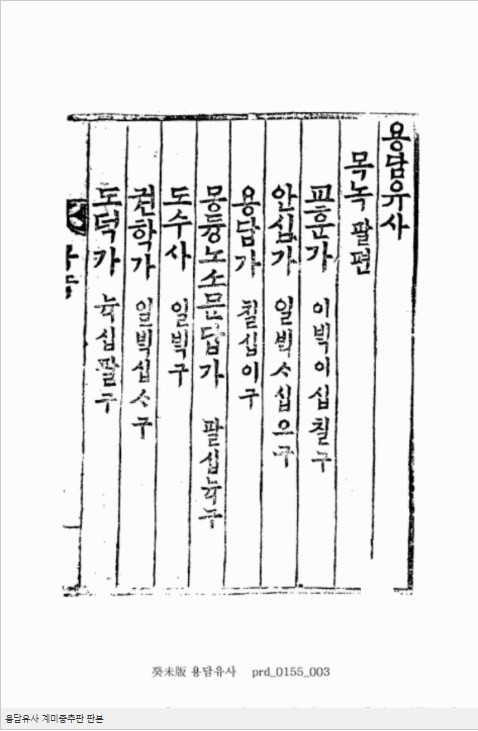 용담유사
목녹 팔편
교훈가 이빅이십칠구
안심가 일빅사십오구
용담가 칠십이구
몽듕노소문답가 팔십뉵구
도수사 일빅구
권학가 일빅십사구
도덕가 뉵십팔구
癸未版 용담유사 prd_0155_003
용담유사 계미중추판 판본